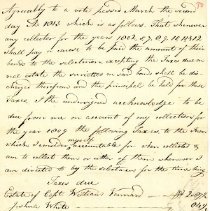 Agreeably to a vote passed March the second
day AD 1813 which is as follows. That whenever
any collector for the years 1802, 07, 09, 10, 11 & 12
shall pay or cause to be paid the amount of their
bonds to the selectmen, excepting the Taxes due on
real estate the sureties on said bond shall be dis-
charged therefrom and the principals be held for those
Taxes, I the undersigned acknowledge to be
due from me on account of my collections for
the year 1809 the following Taxes on to the town
which I consider myself accountable for when collected &
am to collect them or other of them whenever I
am directed to by the selectmen for the time being
Taxes due
Estate of Capt William
Joshua White